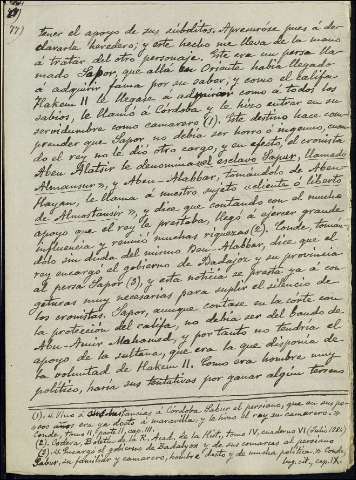 77)
tener el apoyo de sus súbditos. Apresuróse pues á de-
clararle heredero; y este hecho me lleva de la mano
á tratar del otro personaje. Este era un persa lla-
mado Sapor, que allá en Oriente había llegado
á adquirir fama por su saber, y como el califa
Hakem II le llegase á admirar como á todos los
sabios, le llamó á Córdoba y le hizo entrar en su
servidumbre como camarero (1). Este destino hace com-
prender que Sapor no debía ser horro ó ingenuo, cuan-
do el rey no le dió otro cargo, y en efecto, el cronista
Aben Alatsir le denomina «el esclavo Sapur, llamado
Almansur», y Aben-Alabbar, tomándolo de Aben-
Hayan, le llama á nuestro sujeto «cliente ó liberto
de Almostansir», y dice que contando con el mucho
apoyo que el rey le prestaba, llegó á ejercer grande
influencia y reunió muchas riquezas (2). Conde, tomán-
dolo sin duda del mismo Ben-Alabbar, dice que el
rey encargó el gobierno de Badajoz y su provincia
al persa Sapor (3), y esta noticia se presta ya á con-
geturas muy necesarias para suplir el silencio de
los cronistas. Sapor, aunque contase en la corte con
la protección del califa, no debía ser del bando de
Abu-Amir Mohamed, y por tanto no tendría el
apoyo de la sultana, que era la que disponía de
la voluntad de Hakem II. Como era hombre muy
político, haría sus tentativas por ganar algún terreno
(1). «Vino á Córdoba Sabur el persiano, que en sus po-
cos años era ya docto á maravilla: y le hizo el rey su camarero.»
Conde, Tomo II, parte II, cap. III.
(2). Codera, Boletín de la R. Acad. de la Hist., Tomo IV, cuaderno VI (Julio 1884)
(3). «Encargó el gobierno de Badalyos y de sus comarcas al persiano
Sabur, su familiar y camarero, hombre docto y de mucha política.» Conde
lug. cit., cap. IX.